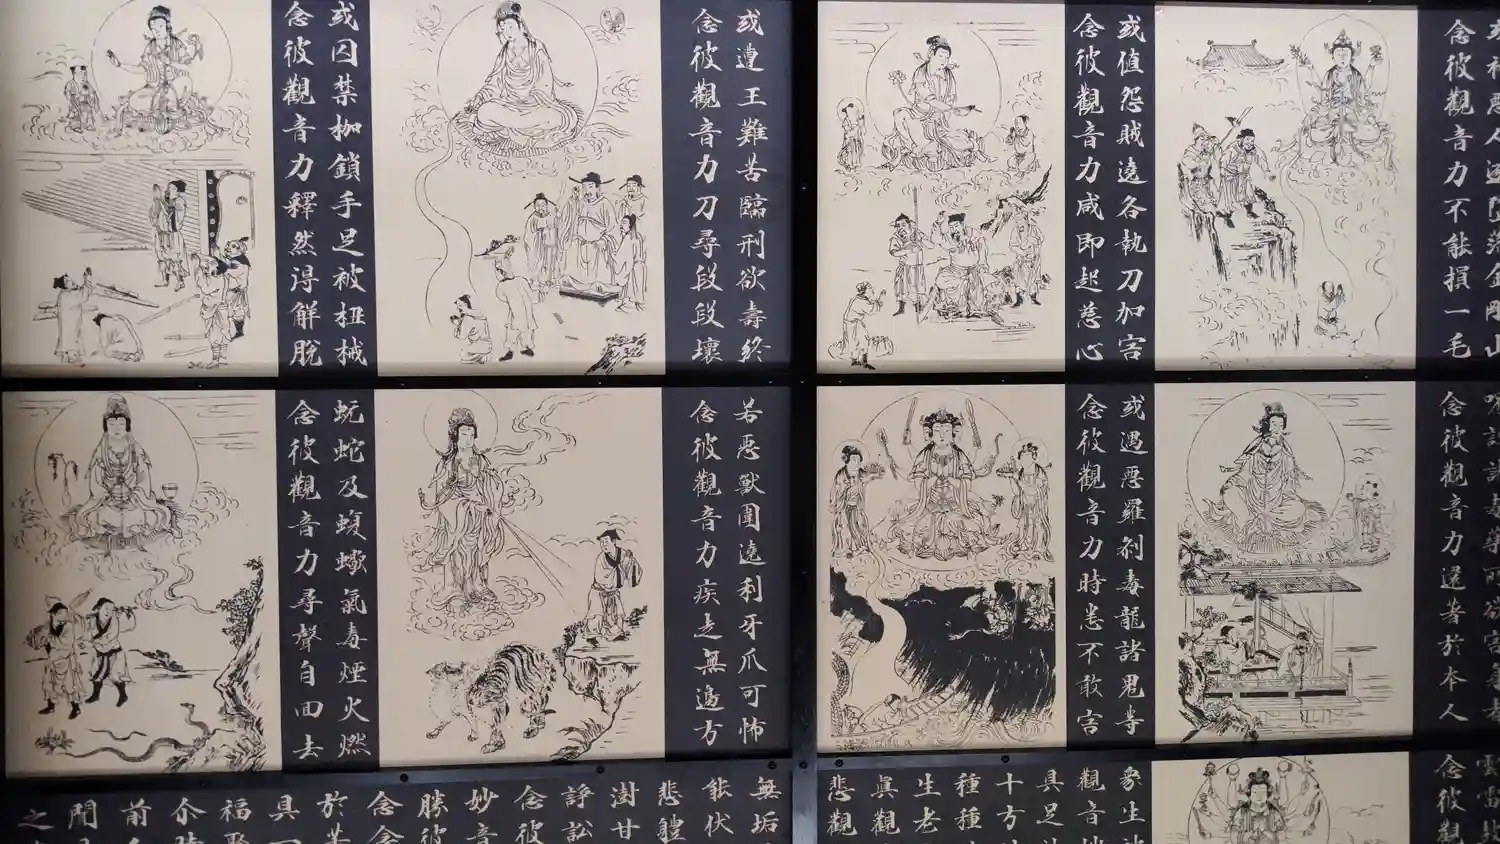 念彼觀音力不能損一毛
或值怨賊遶各執刀加害
念彼觀音力咸即起慈心
或遭王難苦臨刑欲壽終
念彼觀音力刀尋段段壞
或囚禁枷鎖手足被杻械
念彼觀音力釋然得解脫
念彼觀音力還著於本人
或遇惡羅剎毒龍諸鬼等
念彼觀音力時悉不敢害
若惡獸圍遶利牙爪可怖
念彼觀音力疾走無邊方
蚖蛇及蝮蠍氣毒煙火燃
念彼觀音力尋聲自回去
念彼觀
眾生被
觀音妙
具足
十方
種種
生老
真觀
悲觀
無垢
能伏
悲體
澍甘
諍訟
念彼
妙音
勝彼
念念
於苦
具一
福聚
尒時
前
聞
之